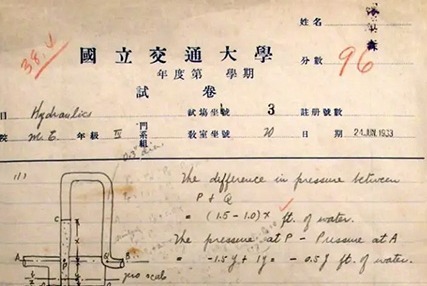 姓名
38. ✓
國立交通大學
分數 96
年度第 學期
試卷
目 Hydraulics 試場坐號 3 註冊號數
院 M. E. 年級 IV 門系組 教室坐號 20 日期 24 JUN. 1933
(1)
The difference in pressure between
P & Q
= (1.5 - 1.0) x ft. of water.
The pressure at P - Pressure at A
= -1.5 y + 1 y = - 0.5 y ft. of water.
C
A
B
zero scale